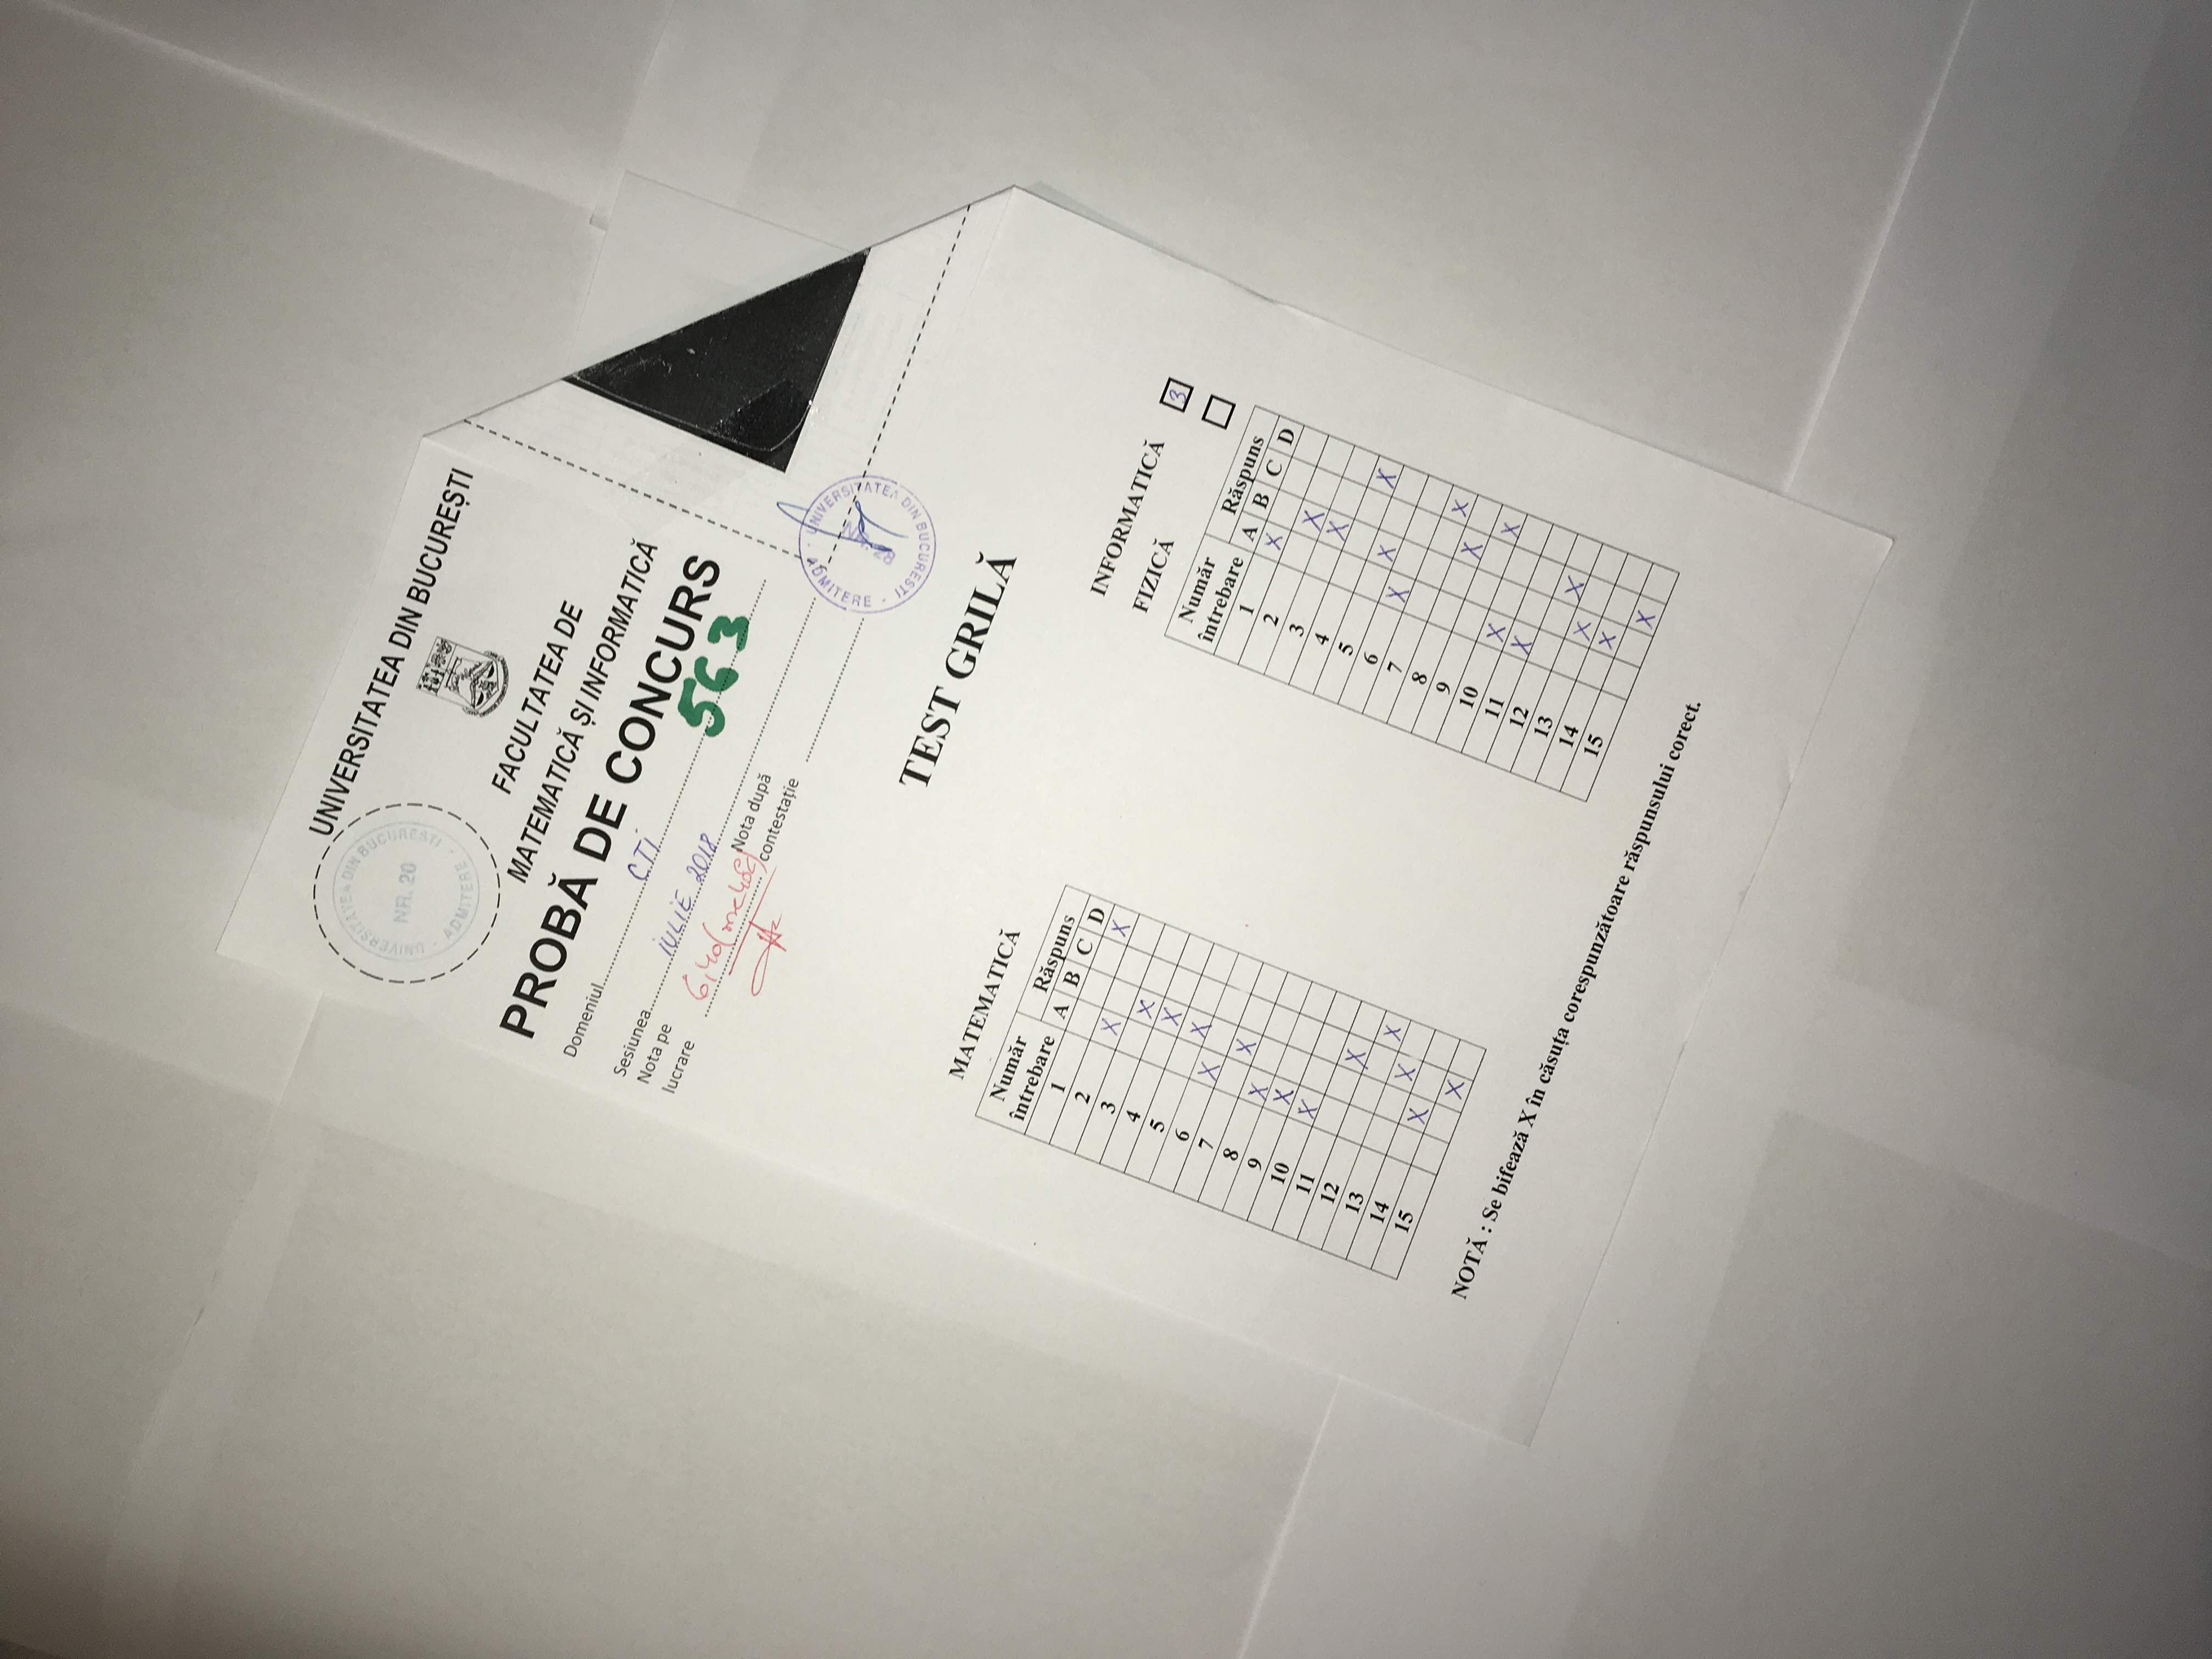 UNIVERSITATEA DIN BUCUREȘTI
UNIVERSITATEA DIN BUCURESTI
NR. 20
ADMITERE
FACULTATEA DE
MATEMATICĂ ȘI INFORMATICĂ
PROBĂ DE CONCURS
Domeniul CTI
563
Sesiunea IULIE 2018
Nota pe
lucrare 6,40
Nota după
contestație
UNIVERSITATEA DIN BUCURESTI
ADMITERE
TEST GRILĂ
MATEMATICĂ
Număr
întrebare
Răspuns
A B C D
1 X
2 X
3 X
4 X
5 X
6 X
7 X
8 X
9 X
10 X
11 X
12 X
13 X
14 X
15 X
INFORMATICĂ 3
FIZICĂ
Număr
întrebare
Răspuns
A B C D
1 X
2 X
3 X
4 X
5 X
6 X
7 X
8 X
9 X
10 X
11 X
12 X
13 X
14 X
15 X
NOTĂ : Se bifează X în căsuța corespunzătoare răspunsului corect.